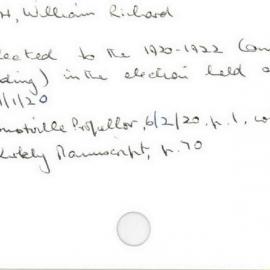 H, William Richard
lected to the 1920-1922 Coun
ding) in the election held o
1/1/20
Propellor, 6/2/20. p.1, co
Manuscript, p.70